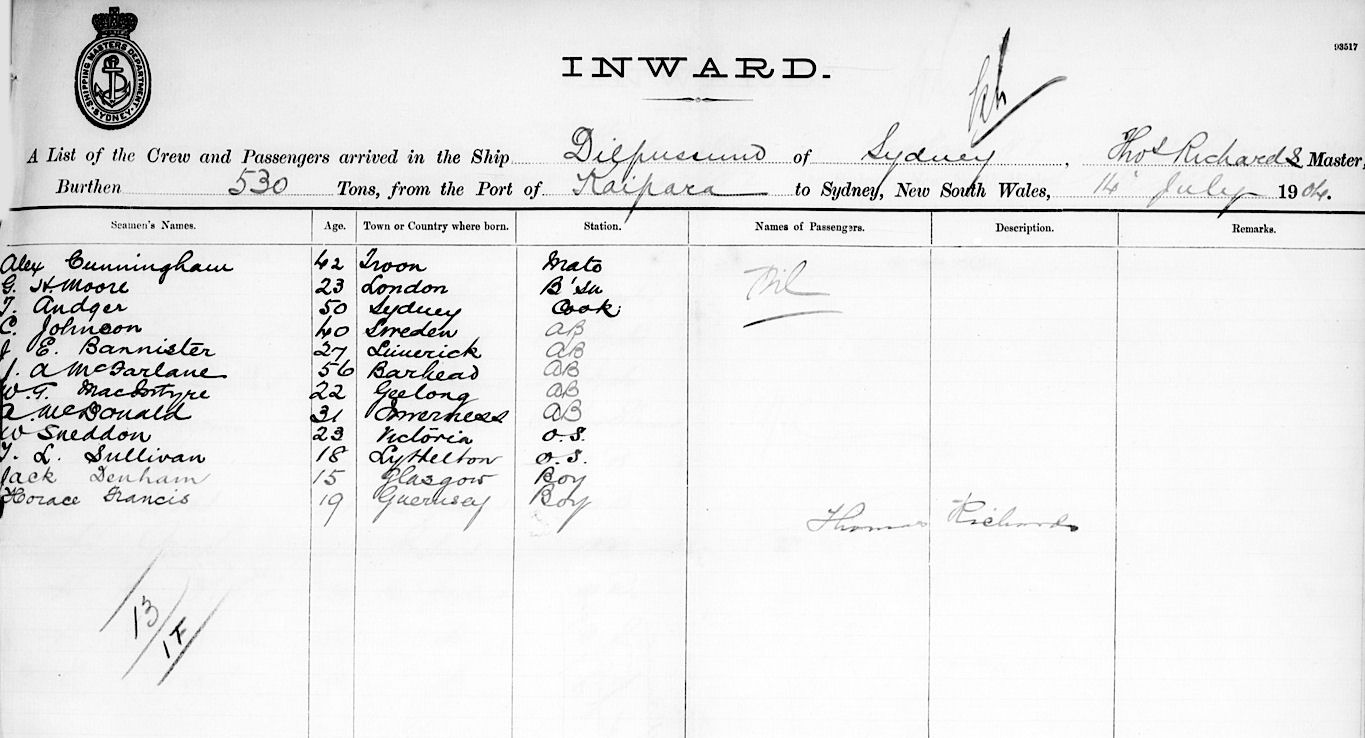 SHIPPING MASTERS DEPARTMENT. SYDNEY.
93517
INWARD.
A List of the Crew and Passengers arrived in the Ship Dilpussund of Sydney, Thos Richards Master,
Burthen 530 Tons, from the Port of Kaipara to Sydney, New South Wales, 14 July 1904.
Seamen's Names. Age. Town or Country where born. Station. Names of Passengers. Description. Remarks.
Alex Cunningham 42 Troon Mate Nil
G. H. Moore 23 London B'sn
T. Andger 50 Sydney Cook
C. Johnson 40 Sweden AB
J E. Bannister 27 Limerick AB
J. A McFarlane 56 Barhead AB
W. G. MacIntyre 22 Geelong AB
A. McDonald 31 Inverness AB
W Sneddon 23 Victoria O.S.
T. L. Sullivan 18 Lyttelton O.S.
Jack Denham 15 Glasgow Boy
Horace Francis 19 Guernsey Boy
Thomas Richards
13